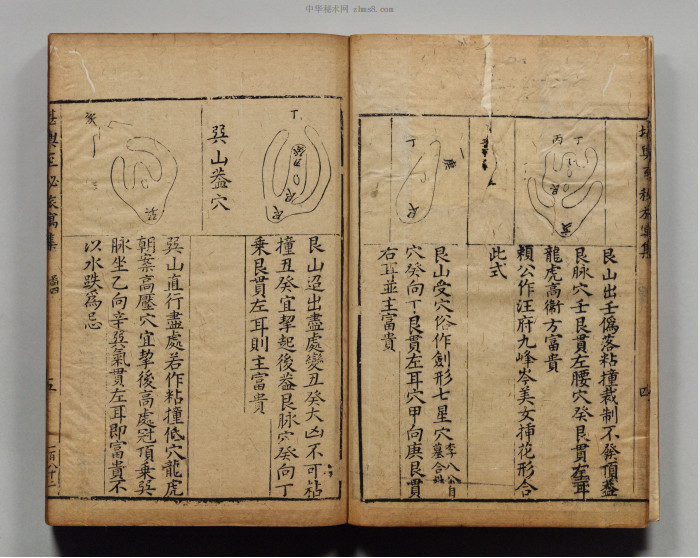 中华秘术网 zhms8.com
丁
丙
亥
艮山出壬僞落粘撞裁制不發頂葢
艮脉穴壬艮貫左腰穴癸艮貫左耳
龍虎高衛方富貴
賴公作汪府九峰岑美女揷花形合
此式
丁
艮
艮山受穴俗作劍形七星穴
穴癸向丁艮貫左耳穴甲向庚艮貫
右耳並主富貴
四
丁
艮
艮山迢出盡處變丑癸大凶不可粘
撞丑癸宜挈起後葢艮脉穴癸向丁
乘艮貫左耳則主富貴
巽山葢穴
亥
巽
巽山直行盡處若作粘撞低穴龍虎
朝案高壓穴宜挈後高處冠頂乗巽
脉坐乙向辛巽氣貫左耳即富貴不
以水跌爲忌
五
一百八十三